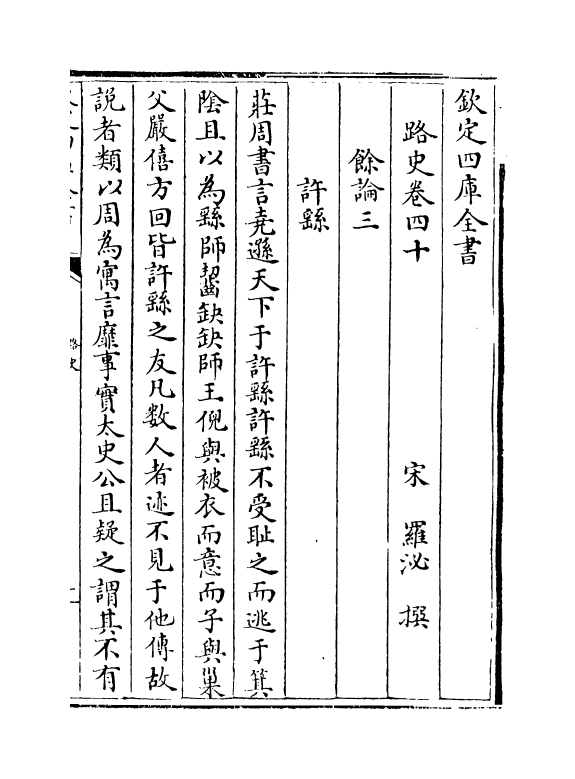 欽定四庫全書
路史卷四十
宋 羅泌 撰
餘論三
許繇
莊周書言堯遜天下于許繇許繇不受耻之而逃于箕
隂且以為繇師齧缺缺師王倪與被衣而意而子與巢
父嚴僖方回皆許繇之友凡数人者迹不見于他傳故
說者類以周為寓言靡事實太史公且疑之謂其不有
路史